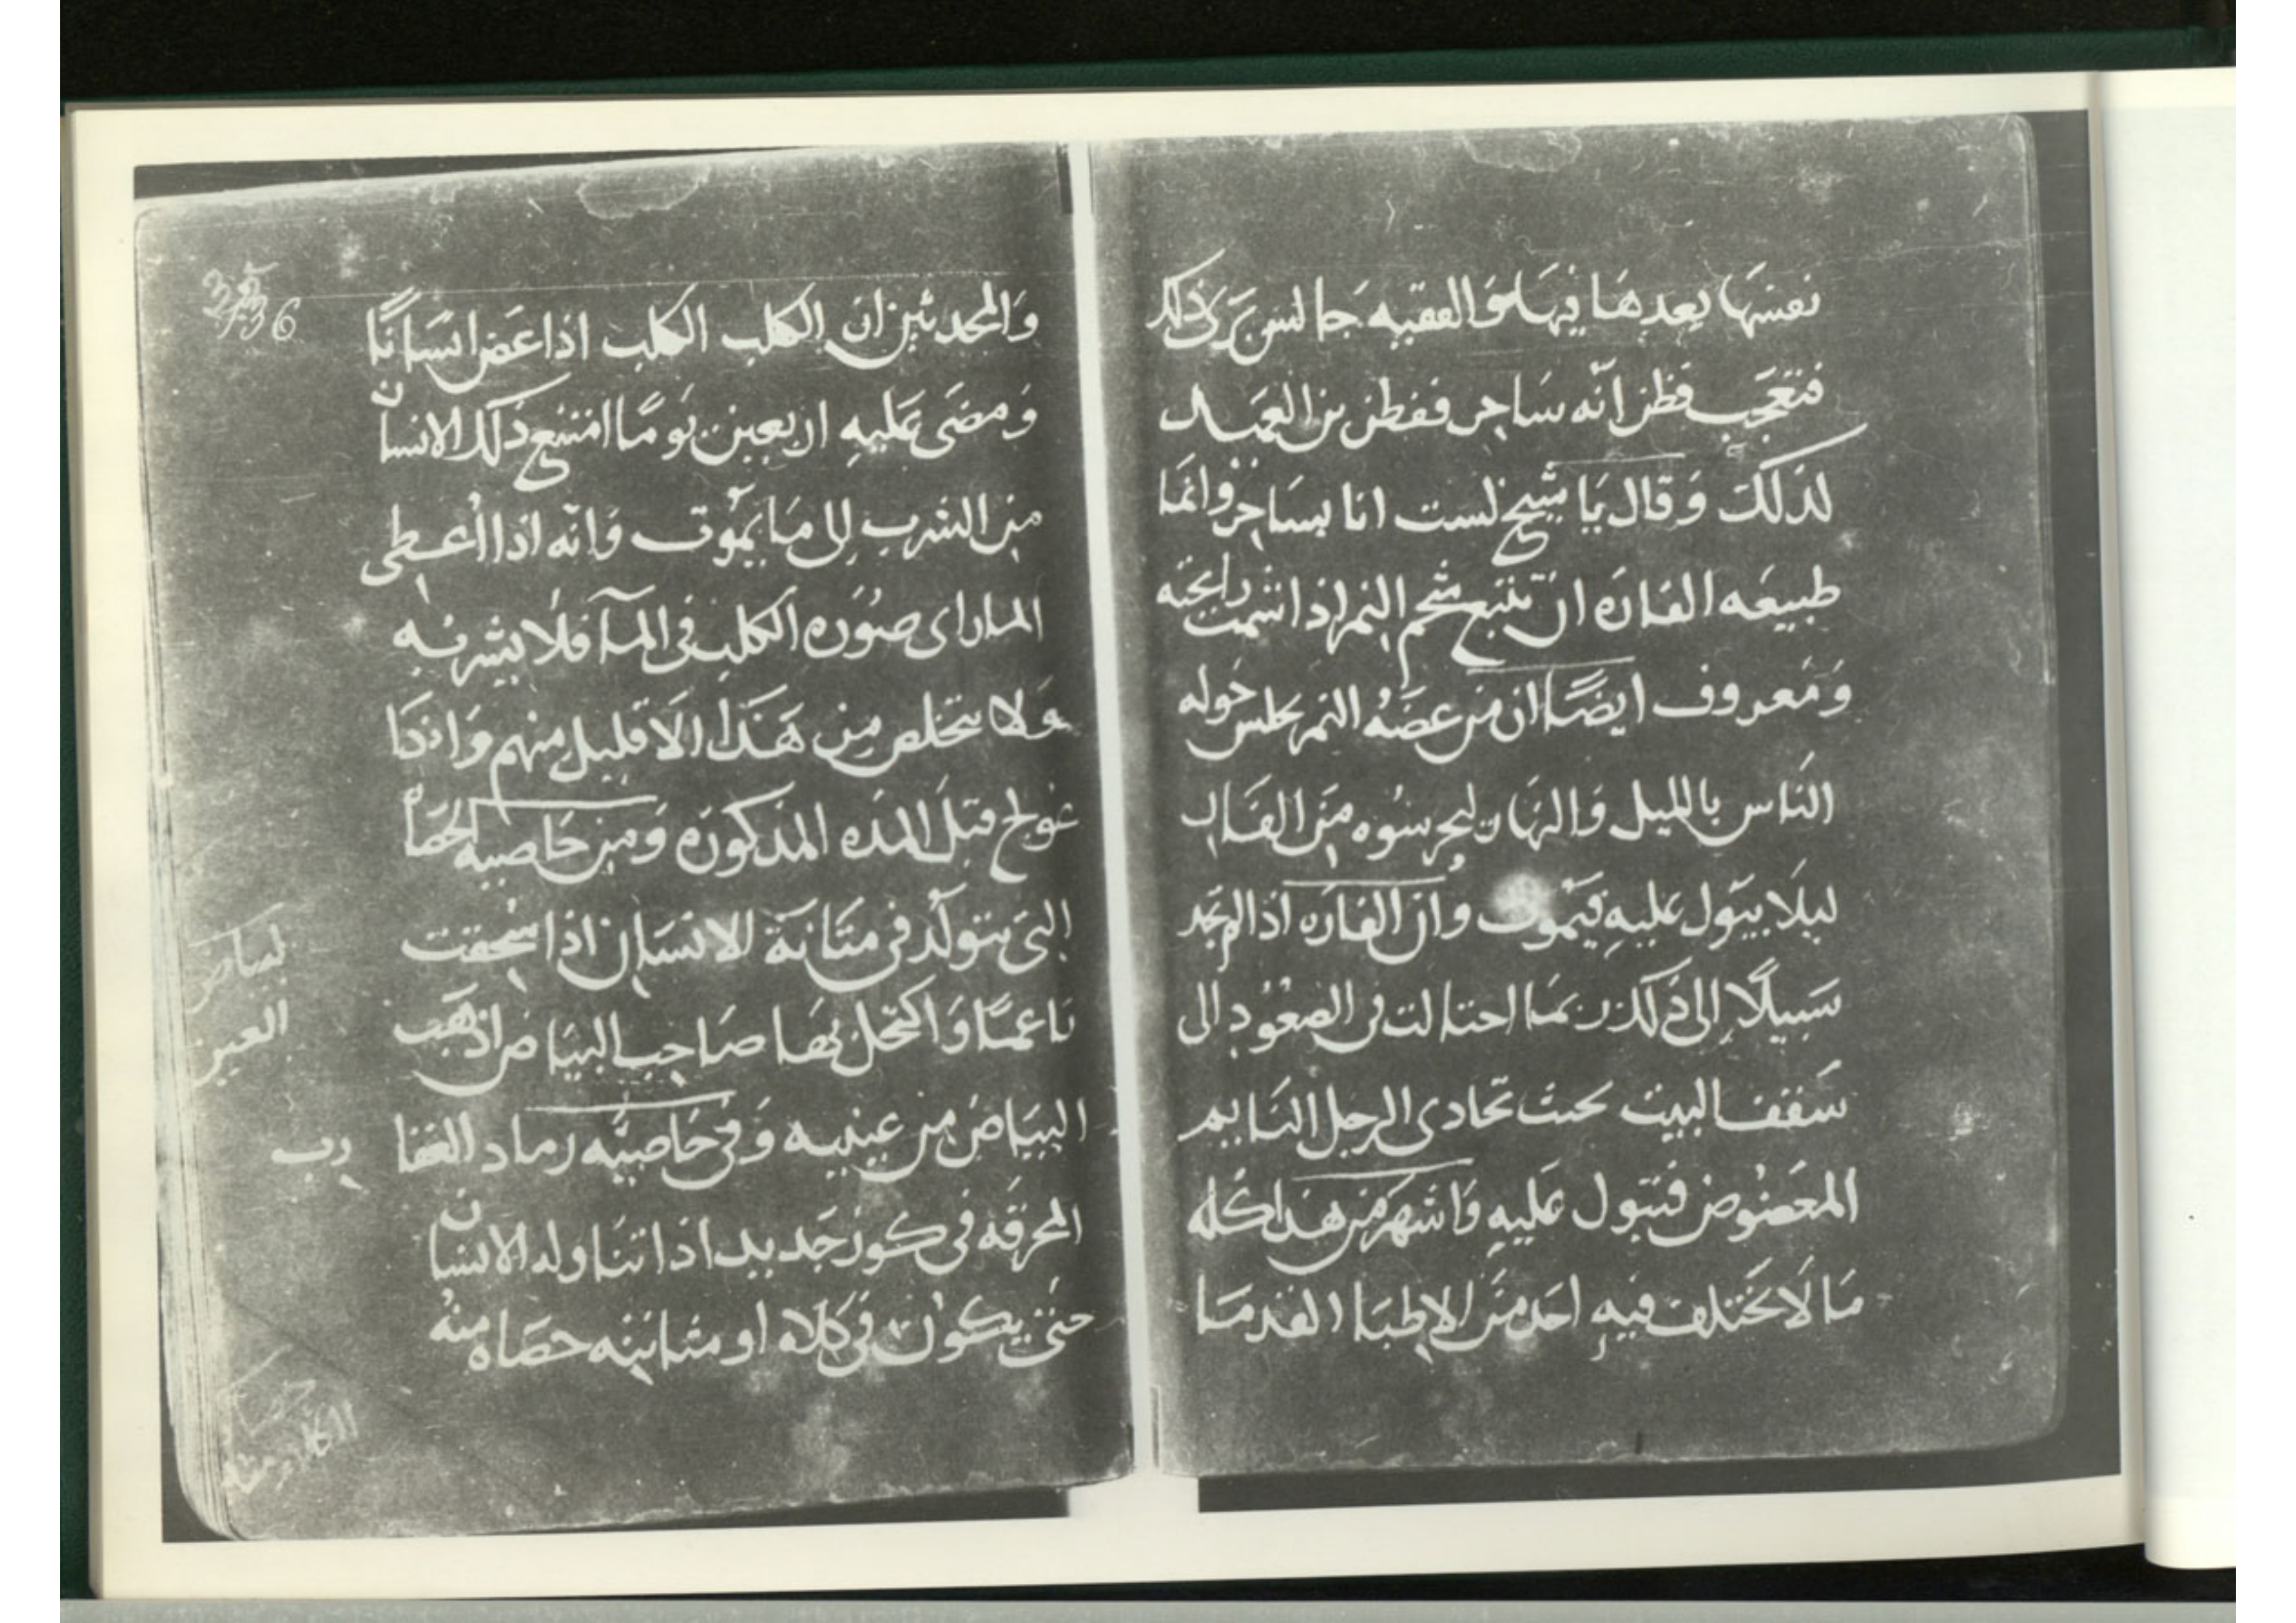 نفسها بعدها فيها والفقيه جالس يرى ذلك
فتعجب فظن انه ساحر ففطن بن العميد
لذلك وقال يا شيخ لست انا بساحر وانما
طبيعه الفاره ان تتبع شحم النمر اذا اشتمت رايحته
ومعروف ايضًا ان من عضه النمر يجلس حوله
الناس بالليل والنهار ليحرسوه من الفار
ليلا يبول عليه فيموت وان الفاره اذا لم تجد
سبيلًا الى ذلك ربما احتالت فى الصعود الى
سقف البيت بحيث تحادى الرجل النايم
المعضوض فتبول عليه واشهر من هذا كله
ما لا يختلف فيه احد من الاطبا القدما
والمحدثين ان الكلب الكلب اذا عض انسانًا
ومضى عليه اربعين يومًا امتنع ذلك الانسان
من الشرب الى ما يموت وانه اذا اعطى
الما راى صوره الكلب فى المآ فلا يشربه
ولا يتخلص من هذا الا قليل منهم واذا
عولج قبل المده المذكوره ومن خاصيه الحصاه
التى تتولد فى مثانة الانسان اذا سحقت
ناعمًا واكتحل بها صاحب البياض اذهب
البياض من عينيه وفى خاصيه رماد العقا
رب
المحرقه فى كوز جديد اذا تناوله الانسان
حتى يكون فى كلاه او مثانته حصاه منه
36
لبياض
العين